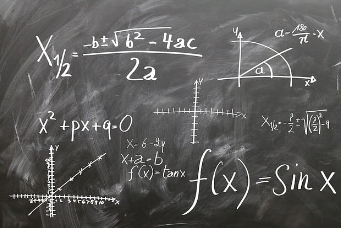 X₁/₂ = -b±√b²-4ac / 2a
y
a - 180/π · x
a
x
x²+px+q=0
y
x
X₁/₂=-p/2±√(p/2)²-q
x-6-2y
x+a=b
f(x)=tanx
y
x
f(x)=Sin x